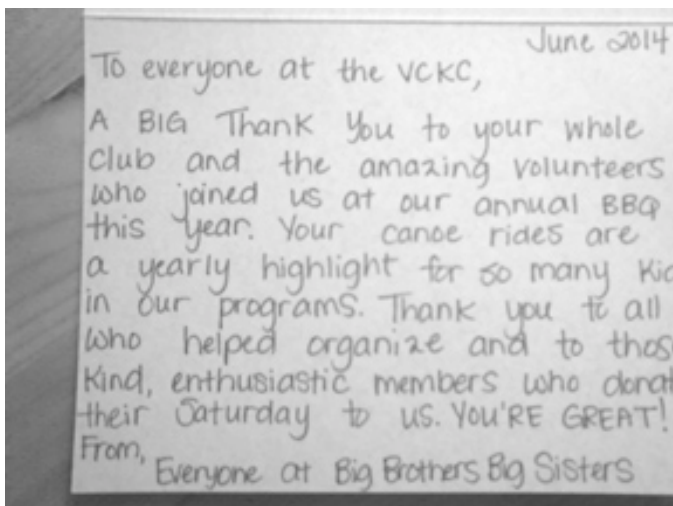 June 2014
To everyone at the VCKC,
A BIG Thank You to your whole
Club and the amazing volunteers
who joined us at our annual BBQ
this year. Your canoe rides are
a yearly highlight for so many Kid
in our programs. Thank you to all
who helped organize and to thos
Kind, enthusiastic members who donat
their Saturday to us. YOU'RE GREAT!
From,
Everyone at Big Brothers Big Sisters